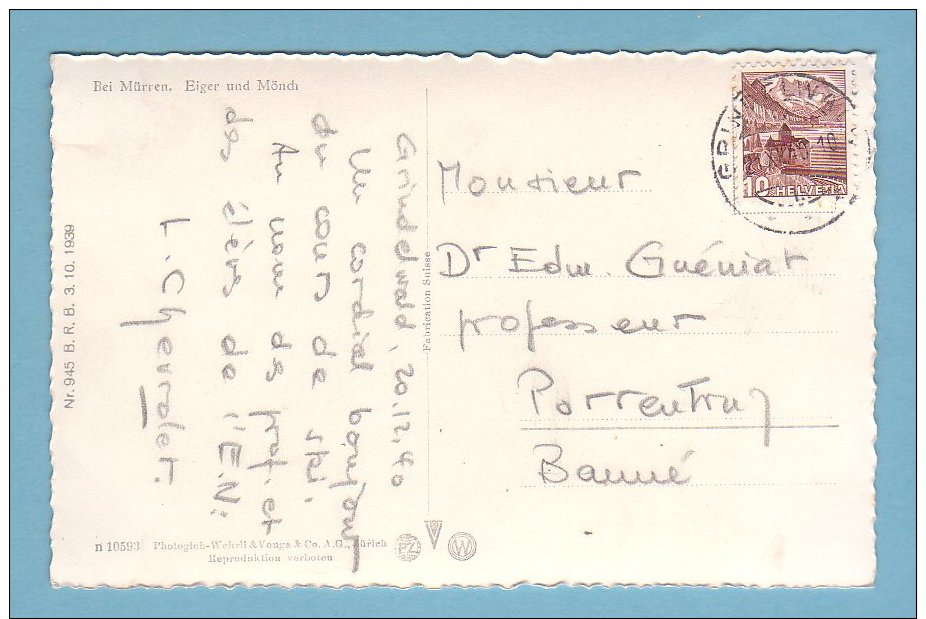 Bei Mürren. Eiger und Mönch
Grindelwald, 20.12.40
Un cordial bonjour
du cours de ski.
Au nom des prof. et
des élèves de l'E.N.:
L. Chevrolet.
Monsieur
Dr Edm. Guéniat
professeur
Porrentruy
Banné
10 HELVETIA
Fabrication Suisse
Nr. 945 B. R. B. 3. 10. 1939
n 10593 Photoglob-Wehrli & Vouga & Co. A.G., Zürich
Reproduktion verboten
PZ
W